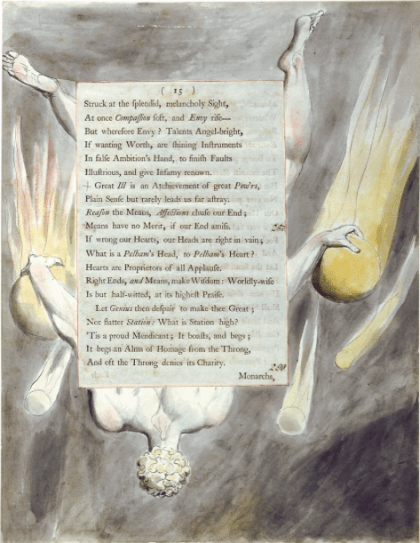 ( 15 )
Struck at the splendid, melancholy Sight,
At once Compassion soft, and Envy rise—
But wherefore Envy? Talents Angel-bright,
If wanting Worth, are shining Instruments
In false Ambition's Hand, to finish Faults
Illustrious, and give Infamy renown.
Great Ill is an Atchievement of great Pow'rs,
Plain Sense but rarely leads us far astray.
Reason the Means, Affections chuse our End;
Means have no Merit, if our End amiss.
If wrong our Hearts, our Heads are right in vain;
What is a Pelham's Head, to Pelham's Heart?
Hearts are Proprietors of all Applause.
Right Ends, and Means, make Wisdom: Worldly-wise
Is but half-witted, at its highest Praise.
Let Genius then despair to make thee Great;
Nor flatter Station: What is Station high?
'Tis a proud Mendicant; It boasts, and begs;
It begs an Alms of Homage from the Throng,
And oft the Throng denies its Charity.
Monarchs,